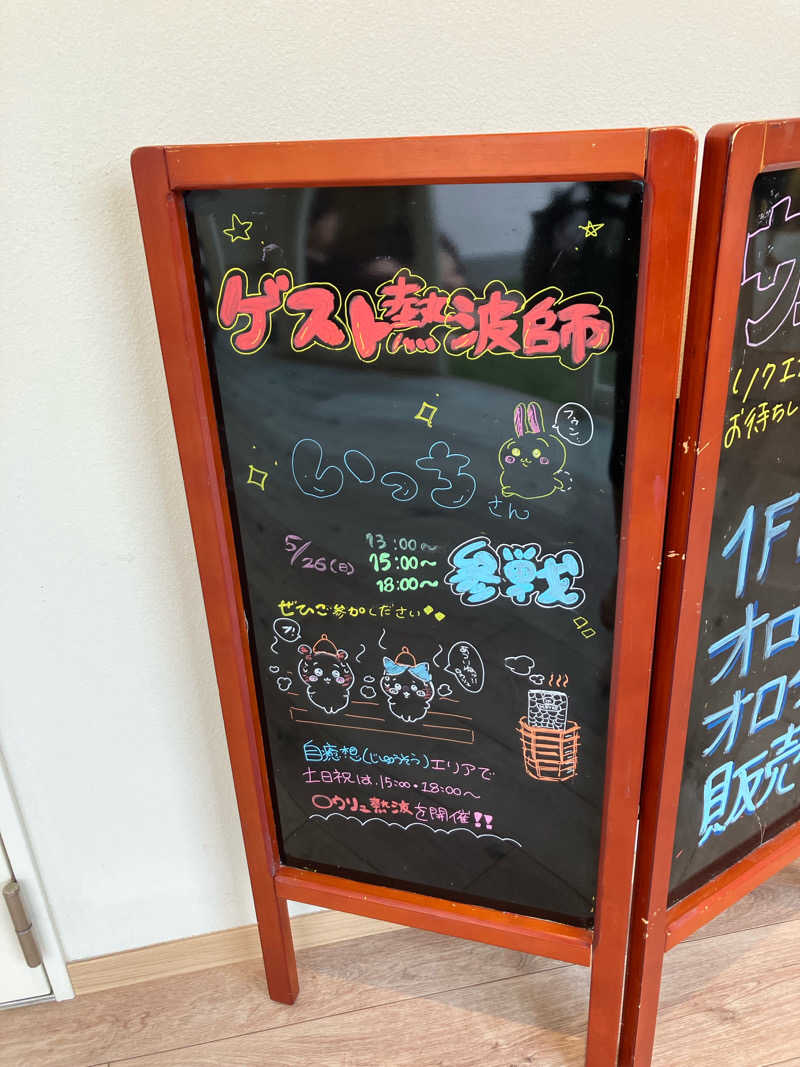 ゲスト熱波師
フゥン
いっち
さん
5/26(日)
13:00〜
15:00〜
18:00〜
参戦
ぜひご参加ください
フ!
自癒想(じゆうそう)エリアで
土日祝は、15:00・18:00〜
〇ウリュ熱波を開催!!
リクエ
お待ちし
1F
オロ
オロ
販売